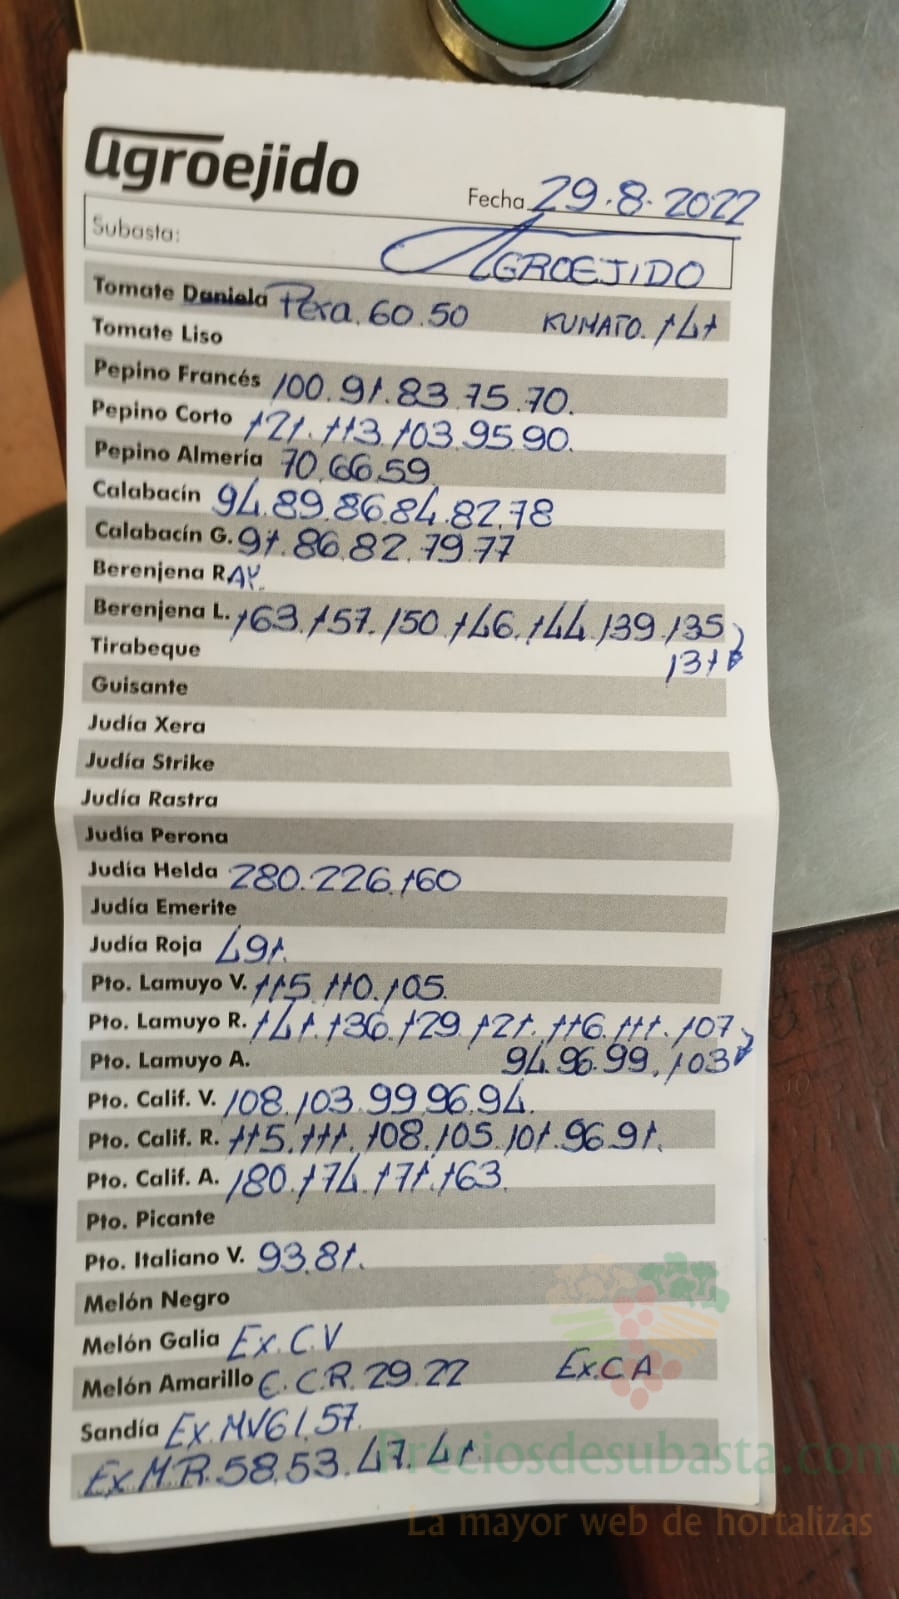 agroejido
Fecha 29.8.2022
Subasta: AGROEJIDO
Tomate Daniela Pera. 60.50 KUMATO. 141
Tomate Liso
Pepino Francés 100.91.83.75.70.
Pepino Corto 121.113.103.95.90.
Pepino Almería 70.66.59
Calabacín 94.89.86.84.82.78
Calabacín G. 91.86.82.79.77
Berenjena RAY.
Berenjena L. 163.157.150.146.144.139.135
Tirabeque 131
Guisante
Judía Xera
Judía Strike
Judía Rastra
Judía Perona
Judía Helda 280.226.160
Judía Emerite
Judía Roja 491.
Pto. Lamuyo V. 115.110.105.
Pto. Lamuyo R. 141.136.129.121.116.111.107
Pto. Lamuyo A. 94.96.99.103
Pto. Calif. V. 108.103.99.96.94.
Pto. Calif. R. 115.111.108.105.101.96.91.
Pto. Calif. A. 180.174.171.163.
Pto. Picante
Pto. Italiano V. 93.81.
Melón Negro
Melón Galia Ex.C.V
Melón Amarillo C.C.R.29.22 Ex.C A
Sandía Ex.MV61.57.
Ex M.R.58.53.47.41.
Preciosdesubasta.com
La mayor web de hortalizas